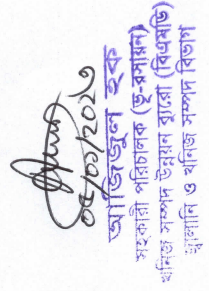 ০৫/০১/২০২৩
আজিজুল হক
সহকারী পরিচালক (ভূ-রসায়ন)
খনিজ সম্পদ উন্নয়ন ব্যুরো (বিএমডি)
জ্বালানি ও খনিজ সম্পদ বিভাগ